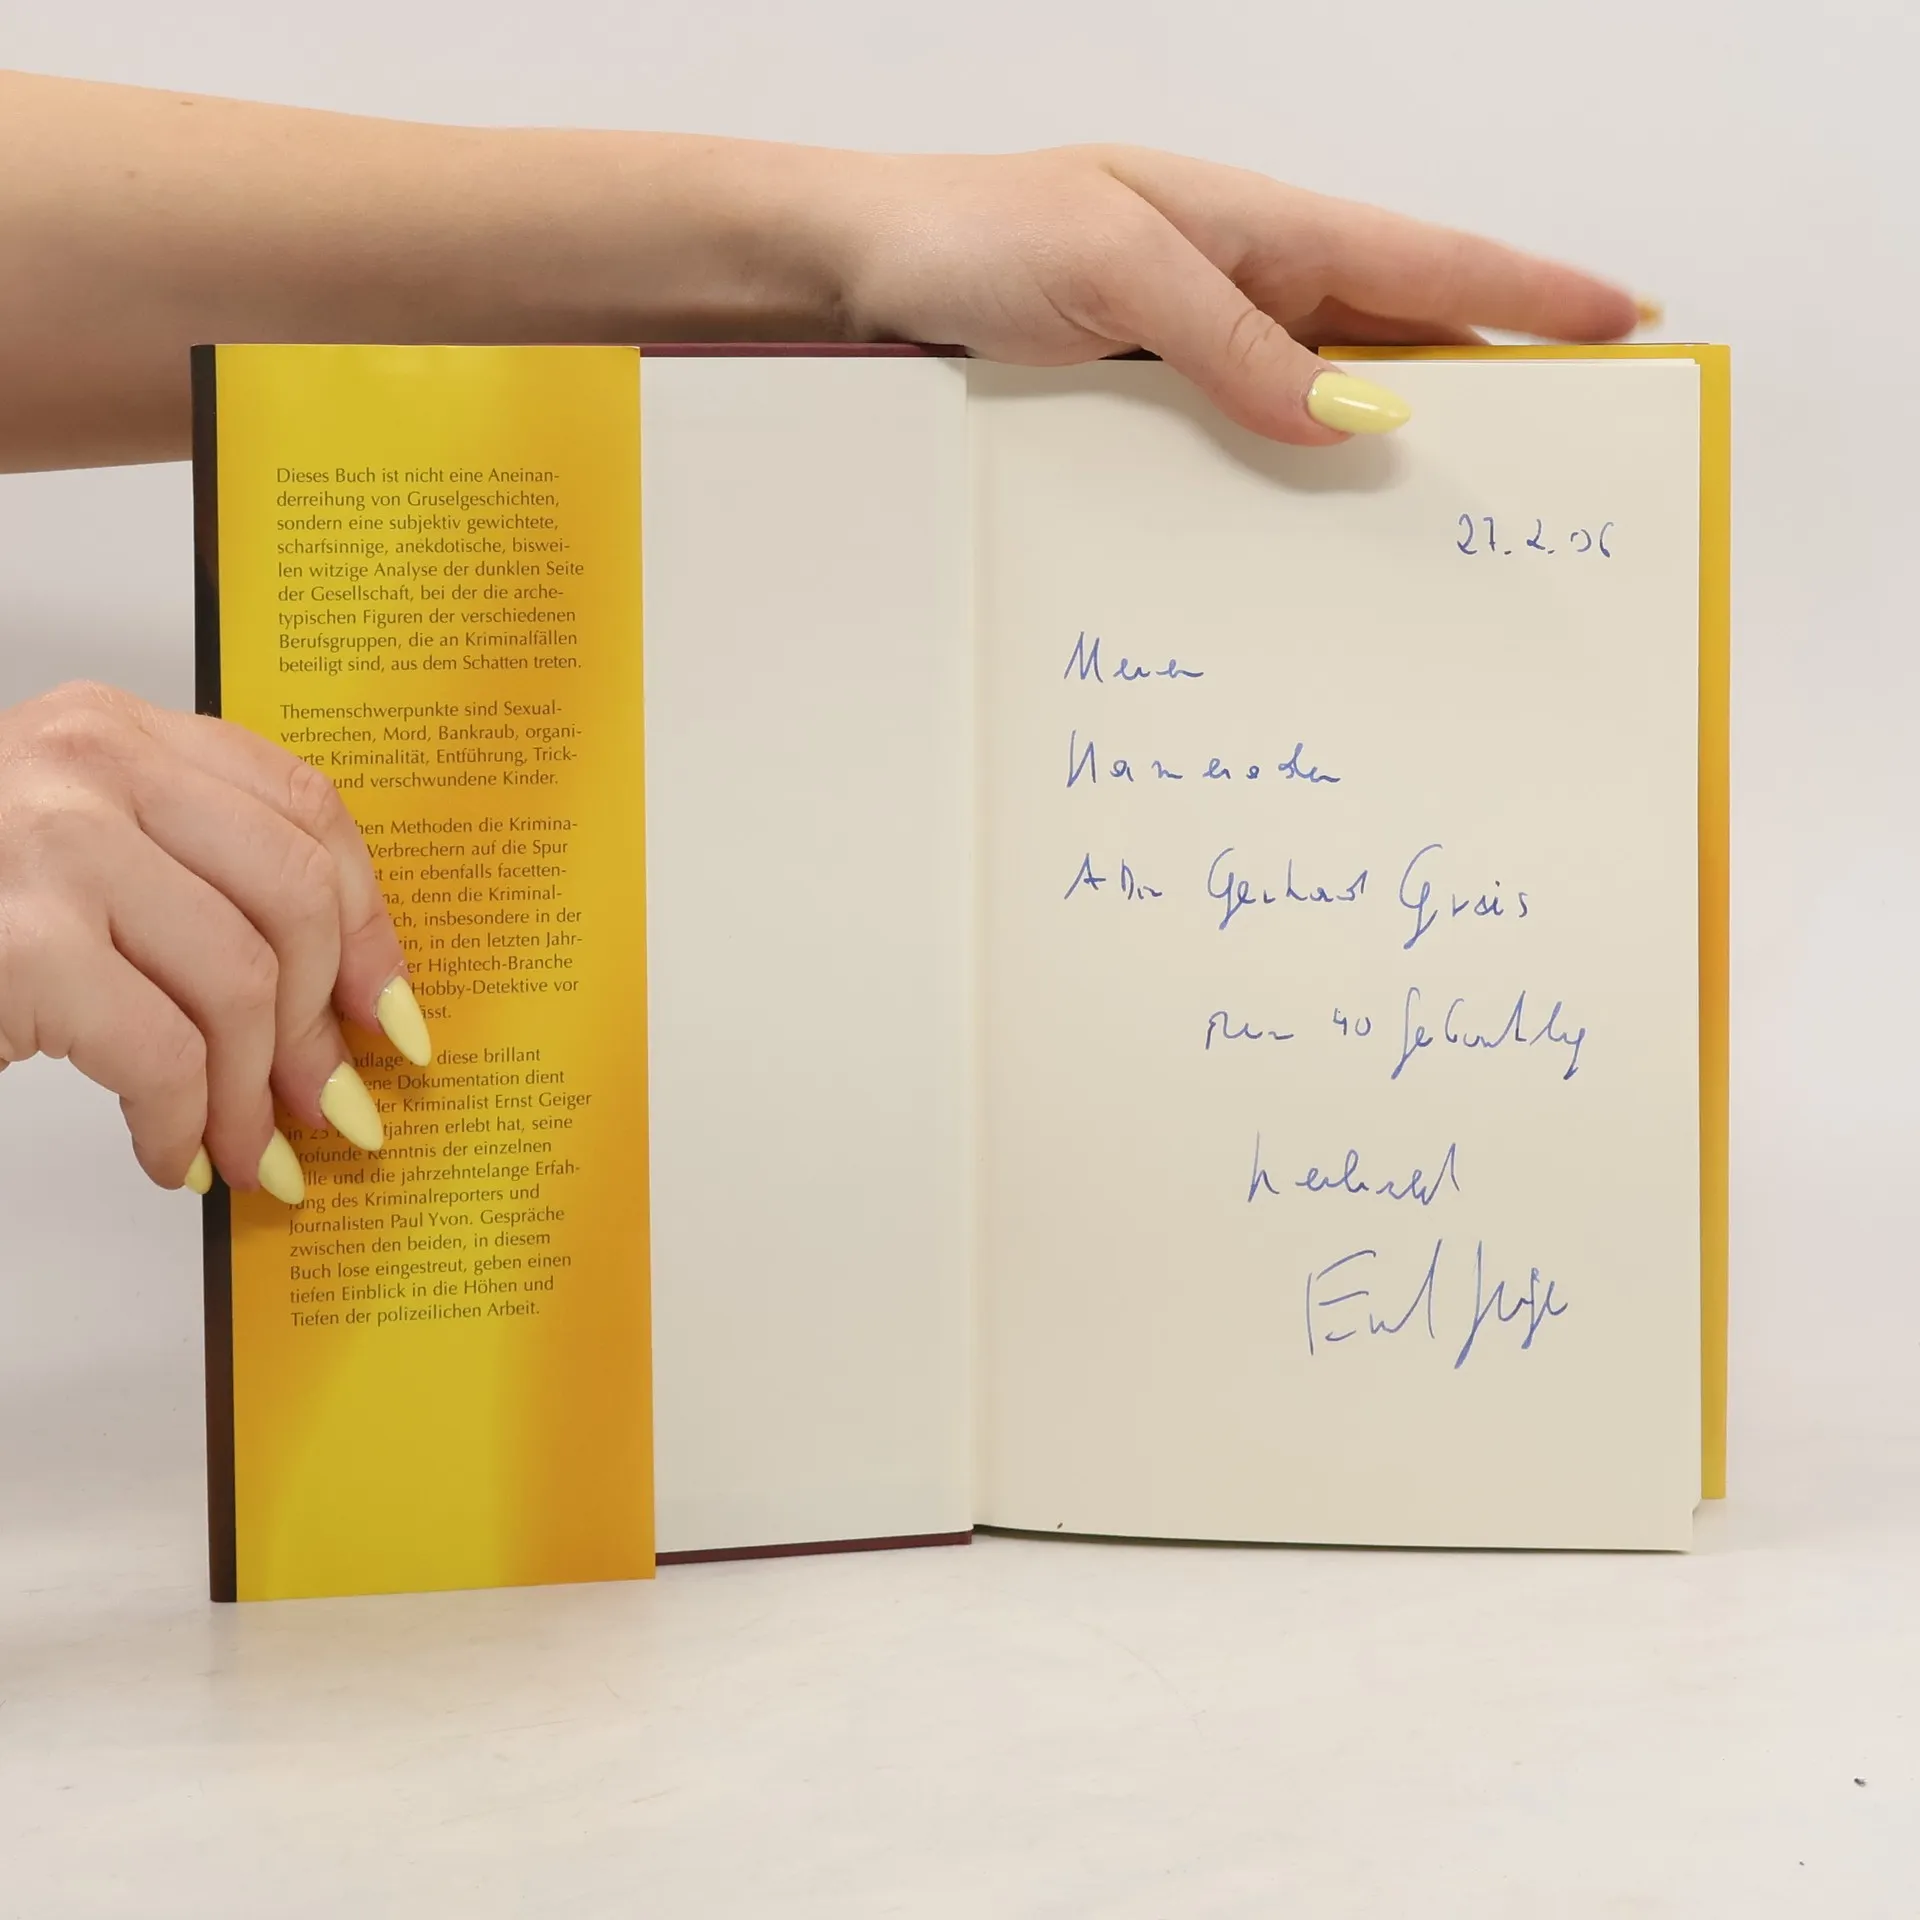 Dieses Buch ist nicht eine Aneinan-
derreihung von Gruselgeschichten,
sondern eine subjektiv gewichtete,
scharfsinnige, anekdotische, biswei-
len witzige Analyse der dunklen Seite
der Gesellschaft, bei der die arche-
typischen Figuren der verschiedenen
Berufsgruppen, die an Kriminalfällen
beteiligt sind, aus dem Schatten treten.
Themenschwerpunkte sind Sexual-
verbrechen, Mord, Bankraub, organi-
Kriminalität, Entführung, Trick-
und verschwundene Kinder.
Methoden die Krimina-
Verbrechern auf die Spur
ein ebenfalls facetten-
denn die Kriminal-
insbesondere in der
in den letzten Jahr-
Hightech-Branche
Hobby-Detektive vor
diese brillant
Dokumentation dient
der Kriminalist Ernst Geiger
in 25 erlebt hat, seine
Kenntnis der einzelnen
und die jahrzehntelange Erfah-
rung des Kriminalreporters und
Journalisten Paul Yvon. Gespräche
zwischen den beiden, in diesem
Buch lose eingestreut, geben einen
tiefen Einblick in die Höhen und
Tiefen der polizeilichen Arbeit.
27.2.06
Meinen
Kameraden
Gerhard
zum 40 Geburtstag
herzlichst
Ernst Geiger